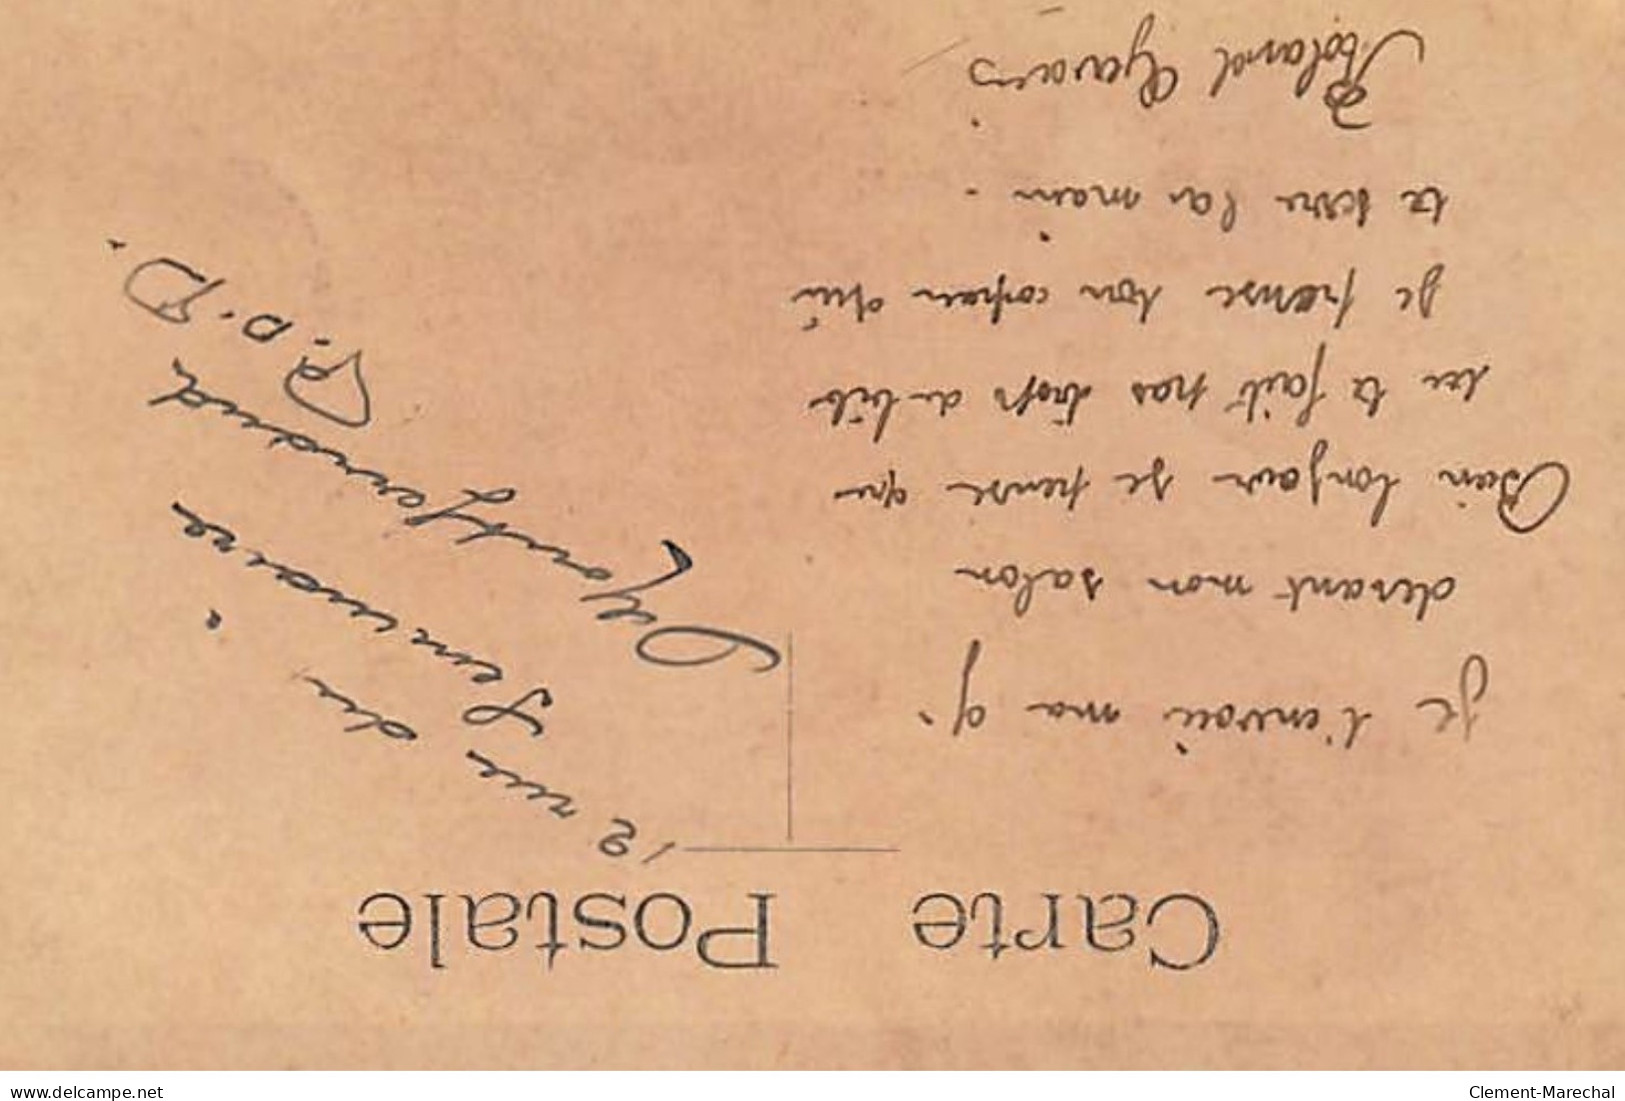 Carte Postale
Je t'envoii ma g'
devant mon salon
Bien bonjour je pense que
tu te fait pas trop de bile
Je pense ton copain qui
te serre la main.
Roland Gervais
12 rue du
Séminaire
Montferrand
P. D. D.
www.delcampe.net
Clement-Marechal